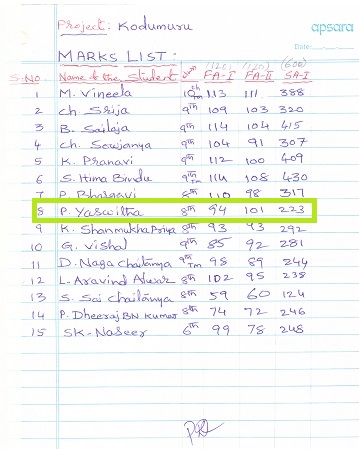 Project: Kodumuru
apsara
Date:
MARKS LIST:
(120) (120) (600)
S.NO. Name of the Student FA-I FA-II SA-I
1 M. Vineela 10th TM 113 111 388
2 Ch Srija 9th 109 103 320
3 B. Sailaja 9th 114 104 415
4 Ch. Sowjanya 9th 104 91 307
5 K. Pranavi 9th 112 100 409
6 S. Hima Bindu 9th TM 114 108 430
7 P. Bhargavi 8th 110 98 317
8 P. Yaswitha 8th 94 101 223
9 K. Shanmukha Priya 8th 93 93 292
10 G. Vishal 9th 85 92 281
11 D. Naga Chaitanya 9th TM 98 89 244
12 L. Aravind 8th 102 95 238
13 S. Sai Chaitanya 8th 59 60 124
14 P. Dheeraj BN Kumar 8th 74 72 246
15 SK. Naseer 6th 99 78 248